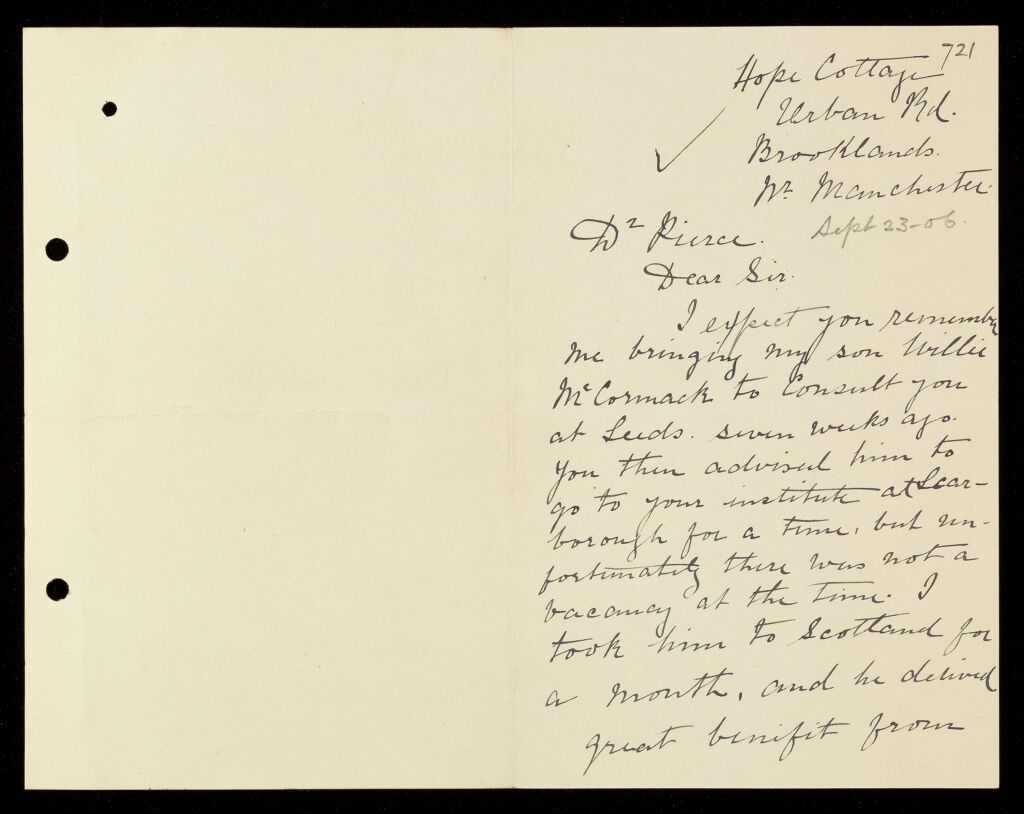 721
Hope Cottage
Urban Rd.
Brooklands.
Nr Manchester.
Sept 23-06.
Dr Pierce.
Dear Sir.
I expect you remember
me bringing my son Willie
McCormack to Consult you
at Leeds. seven weeks ago.
You then advised him to
go to your institute at Scar-
borough for a time, but un-
fortunately there was not a
vacancy at the time. I
took him to Scotland for
a month, and he derived
great benifit from